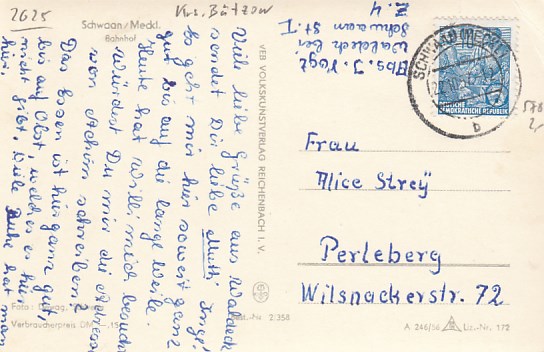 2625
Krs. Bützow
Schwaan/Meckl.
Bahnhof
Viele liebe Grüße aus Waldeck
sendet Dir liebe Mutti Inge!
Es geht mir hier soweit ganz
gut bis auf die lange Weile.
Heute hat Willi mich besucht
würdest Du mir die Adresse
von Achim schreiben?
Das Essen ist hier ganz gut,
bis auf Obst, welches es hier
nicht gibt. Viele Ruhe hat man
hier.
Foto:
Verbraucherpreis DM -,15
VEB VOLKSKUNSTVERLAG REICHENBACH I. V.
Best.-Nr 2/358
Abs. I. Vogt
Waldeck bei
Schwaan St. I
Z. 4
SCHWAAN (MECKL)
b
10
DEUTSCHE
DEMOKRATISCHE REPUBLIK
578
2,-
Frau
Alice Streÿ
Perleberg
Wilsnackerstr. 72
A 246/56 Liz.-Nr. 172